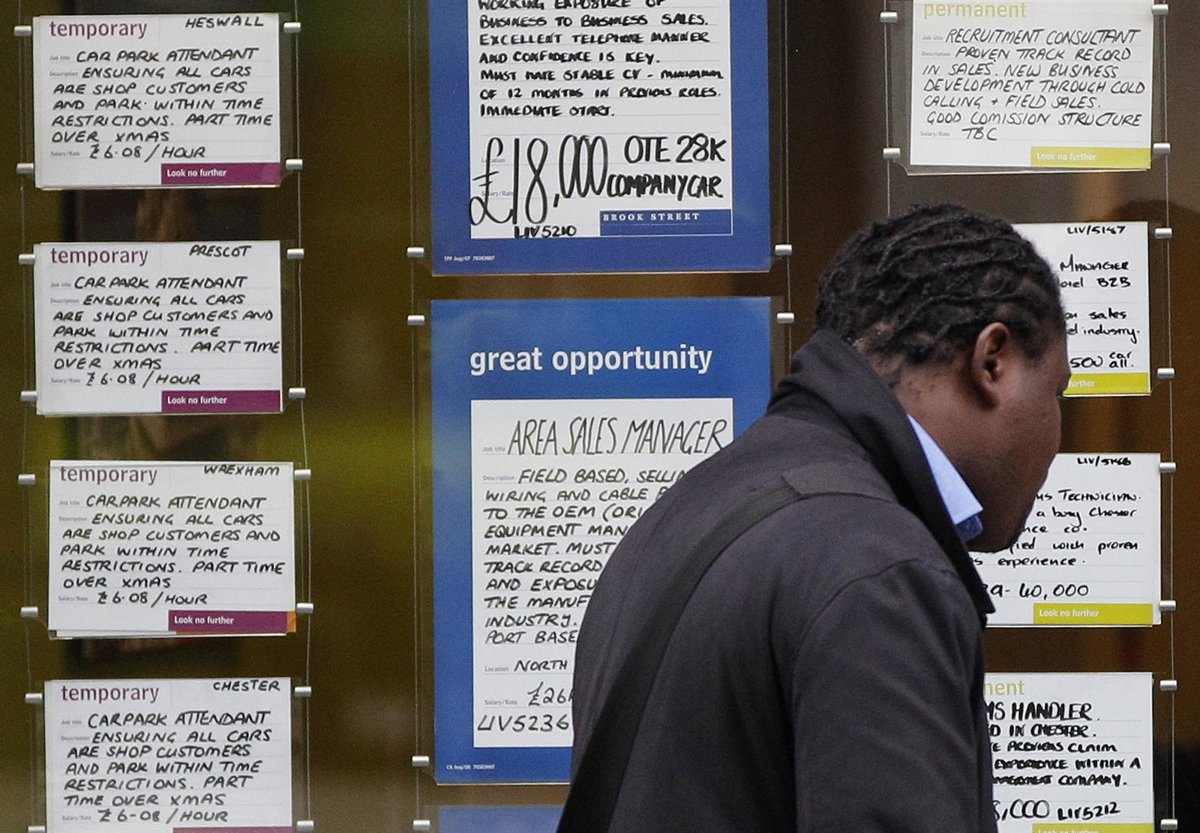 temporary
HESWALL
Job title CAR PARK ATTENDANT
Description ENSURING ALL CARS
ARE SHOP CUSTOMERS
AND PARK WITHIN TIME
RESTRICTIONS. PART TIME
OVER XMAS
Salary/Rate £6.08/HOUR
Look no further
temporary
PRESCOT
Job title CAR PARK ATTENDANT
Description ENSURING ALL CARS
ARE SHOP CUSTOMERS AND
PARK WITHIN TIME
RESTRICTIONS. PART TIME
OVER XMAS
Salary/Rate £6.08/HOUR
Look no further
temporary
WREXHAM
Job title CARPARK ATTENDANT
Description ENSURING ALL CARS
ARE SHOP CUSTOMERS AND
PARK WITHIN TIME
RESTRICTIONS. PART TIME
OVER XMAS
Salary/Rate £6.08/HOUR
Look no further
temporary
CHESTER
Job title CARPARK ATTENDANT
Description ENSURING ALL CARS
ARE SHOP CUSTOMERS
AND PARK WITHIN TIME
RESTRICTIONS. PART
TIME OVER XMAS
Salary/Rate £6-08/HOUR
WORKING EXPOSURE OF
BUSINESS TO BUSINESS SALES.
EXCELLENT TELEPHONE MANNER
AND CONFIDENCE IS KEY.
MUST HAVE STABLE CV - MINIMUM
OF 12 MONTHS IN PREVIOUS ROLES.
IMMEDIATE START.
Location
Salary/Rate £18,000 OTE 28K
COMPANY CAR
LIV5210
BROOK STREET
great opportunity
Job title AREA SALES MANAGER
Description FIELD BASED, SELLIN
WIRING AND CABLE
TO THE OEM (ORI
EQUIPMENT MAN
MARKET. MUST
TRACK RECORD
AND EXPOSU
THE MANUF
INDUSTRY.
PORT BASE
Location NORTH
Salary £26
LIV5236
permanent
Job title RECRUITMENT CONSULTANT
Description PROVEN TRACK RECORD
IN SALES. NEW BUSINESS
DEVELOPMENT THROUGH COLD
CALLING + FIELD SALES.
GOOD COMISSION STRUCTURE
Salary/Rate TBC
Look no further
LIV/5147
MANAGER
B2B
sales
industry.
500 car
all.
further
TECHNICIAN.
a busy Chester
co.
with proven
experience.
- 40,000
Look no further
MS HANDLER.
D IN CHESTER.
PREVIOUS CLAIM
EXPERIENCE WITHIN A
COMPANY.
,000 LIV5212
Look no further